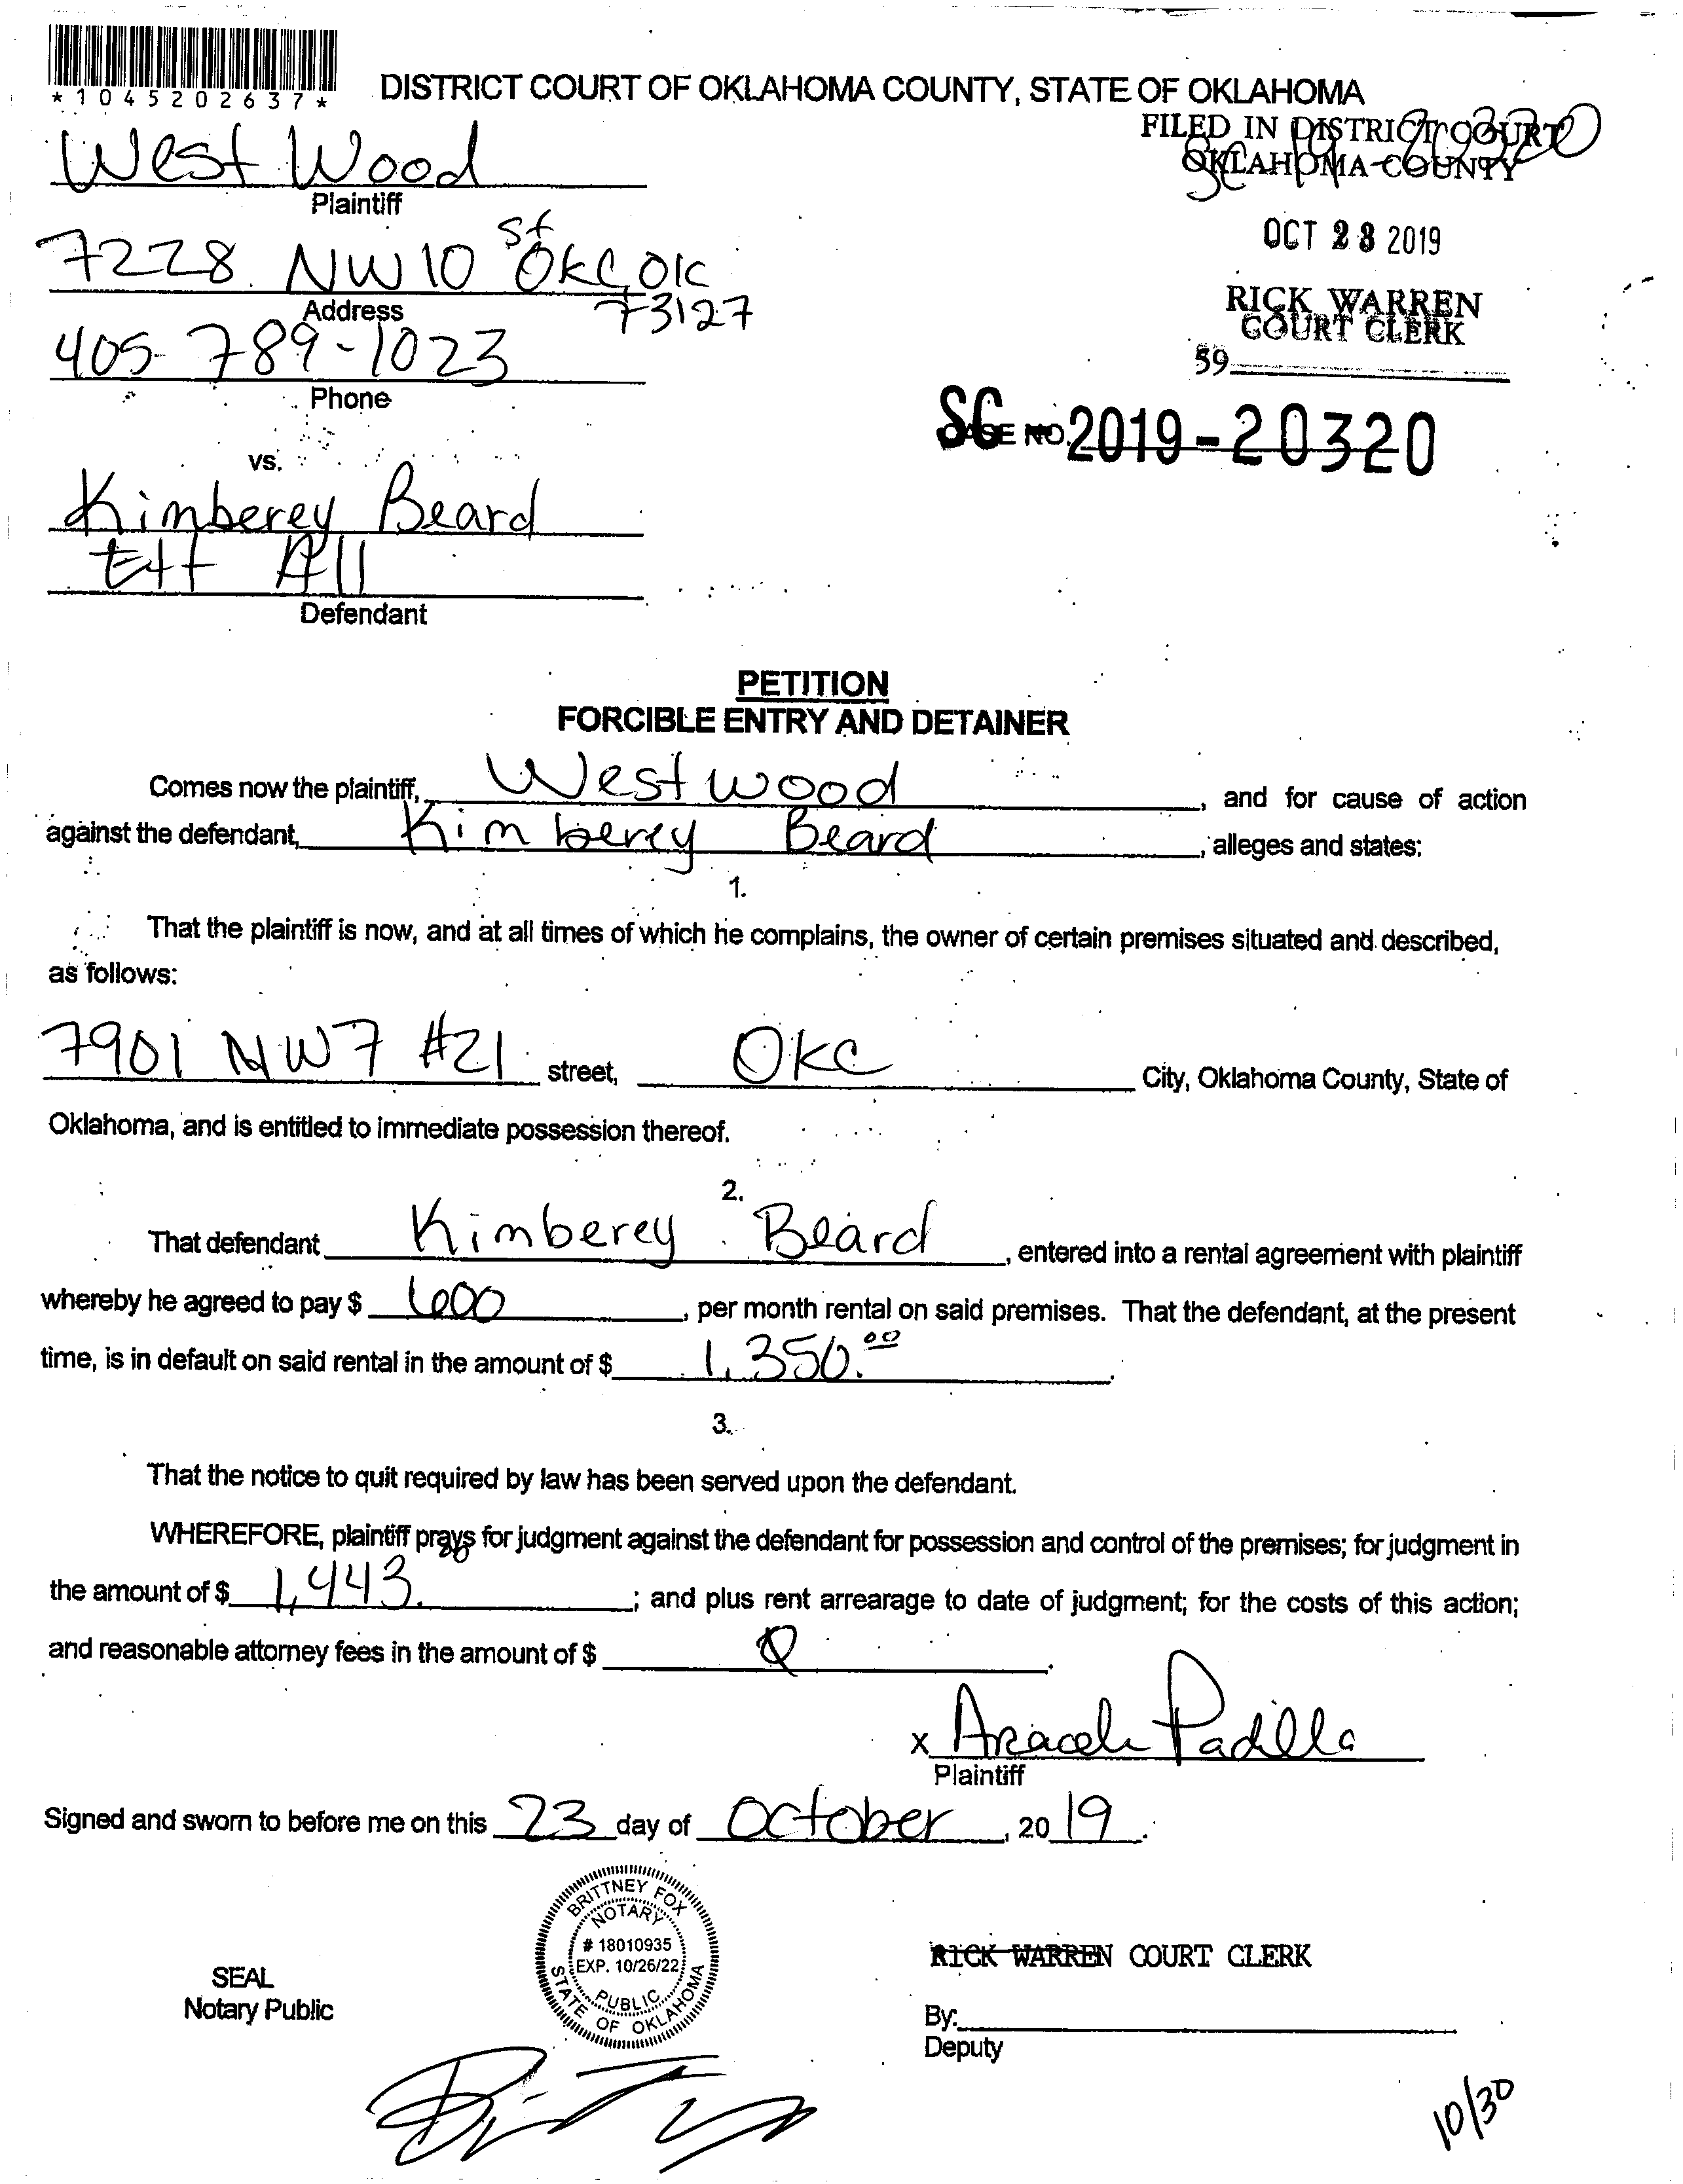 *1045202637*
DISTRICT COURT OF OKLAHOMA COUNTY, STATE OF OKLAHOMA
SC 19-20320
FILED IN DISTRICT COURT
OKLAHOMA COUNTY
West Wood
Plaintiff
OCT 23 2019
7228 NW 10 st OKC, OK
73127
Address
RICK WARREN
COURT CLERK
405-789-1023
59
Phone
SC CASE NO. 2019-20320
vs.
Kimberey Beard
Ett All
Defendant
PETITION
FORCIBLE ENTRY AND DETAINER
Comes now the plaintiff, Westwood, and for cause of action
against the defendant, Kimberey Beard, alleges and states:
1.
That the plaintiff is now, and at all times of which he complains, the owner of certain premises situated and described,
as follows:
7901 NW 7 #21 street, OKC City, Oklahoma County, State of
Oklahoma, and is entitled to immediate possession thereof.
2.
That defendant Kimberey Beard, entered into a rental agreement with plaintiff
whereby he agreed to pay $ 600, per month rental on said premises. That the defendant, at the present
time, is in default on said rental in the amount of $ 1,350.00.
3.
That the notice to quit required by law has been served upon the defendant.
WHEREFORE, plaintiff prays for judgment against the defendant for possession and control of the premises; for judgment in
the amount of $ 1,443.00; and plus rent arrearage to date of judgment; for the costs of this action;
and reasonable attorney fees in the amount of $ 0.
x Araceli Padilla
Plaintiff
Signed and sworn to before me on this 23 day of October, 2019.
BRITTNEY FOX
NOTARY
# 18010935
EXP. 10/26/22
PUBLIC
STATE OF OKLAHOMA
SEAL
Notary Public
RICK WARREN COURT CLERK
By:
Deputy
10/30